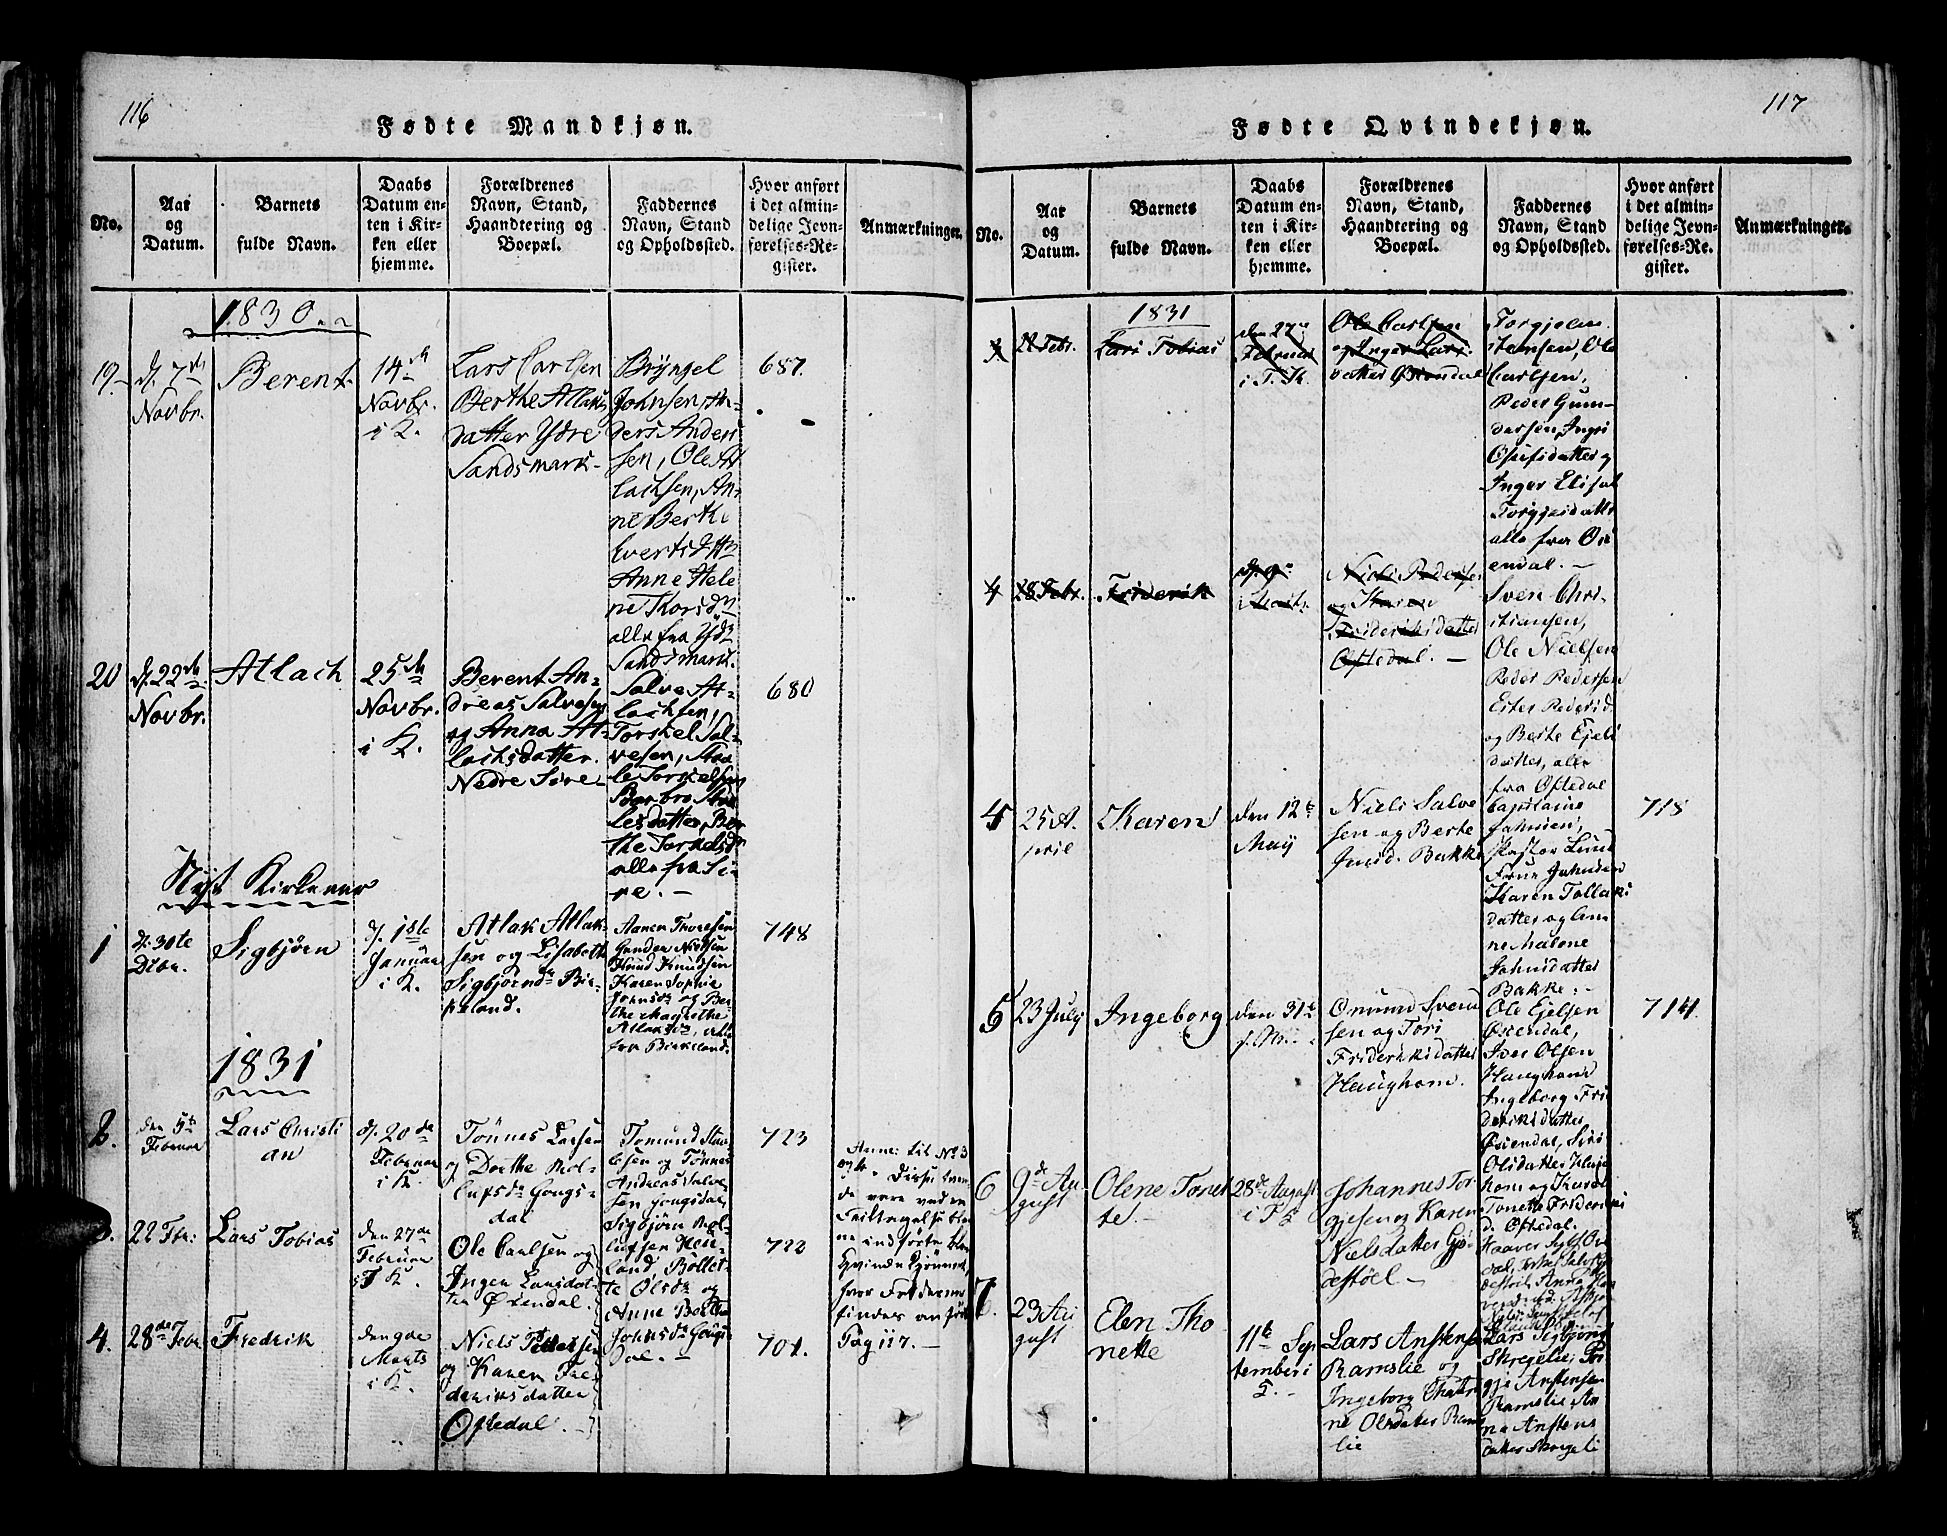 116
Fødte Mandkjøn.
No.
Aar
og
Datum.
Barnets
fulde Navn.
Daabs
Datum en-
ten i Kir-
ken eller
hjemme.
Forældrenes
Navn, Stand,
Haandtering og
Boepæl.
Faddernes
Navn, Stand
og Opholdssted.
Hvor anført
i det almin-
delige Jevn-
førelses-Re-
gister.
Anmærkninger.
1830
19
d. 7de
Novbr.
Berent
14de
Novbr.
i K.
Lars Carlsen
Berthe Atlaks
datter Ydre
Sandsmark
Brynjel
Johnsen, An-
ders Ander
sen, Ole At
lachsen, An-
ne Berthe
Evertsdttr
Anne Hele
ne Thorsdr
alle fra Ydr
Sandsmark.
687.
20
d. 22de
Novbr.
Atlach
25de
Novbr.
i K.
Berent An-
dreas Salvesen
og Anna At-
lachsdatter
Nedre Sire
Salve At-
lachsen,
Torskel Sal-
vesen, Staa
le Torkelsen
Barbro Staa
lesdatter, Ber
the Torkelsdr
alle fra Si-
re.
680
Nyt Kirkeaar
1
d. 30te
Dcbr.
Sigbjørn
d. 1ste
Januar
i K.
Atlak Atlak-
sen og Lisabeth
Sigbjørndr Bir-
keland.
Aanen Thoresen
Gunder Nielsen
Knud Knudsen
Karen Sophie
Johnsdr og Ber
the Magrethe
Atlaksdr, alle
fra Birkeland.
748
1831
2.
den 5te
Februar
Lars Christi
an
d. 20de
Februar
i K.
Tönnes Larsen
og Dorthe Mol-
lupsdr Gougs-
dal
Tomund Staa
lesen og Tönnes
Andreas Salve-
sen Gougsdal,
Sigbjörn Mol-
lupsen
land Bollet-
te Olsdr og
Anne Berthe
Johnsdr Gougs-
dal.
723
3.
22 Fbr:
Lars Tobias
den 27de
Februar
i K.
Ole Carlsen og
Inger Larsdat-
ter Øiendal.
722
Anm: til No 3
og 4. Disse
de vare ved en
Feiltagelse ble
ne indførte blan
Qvindekjønnet,
hvor Fadderne
findes anførte
Pag 117.
4.
28de Febr.
Fredrik
den 9de
Marts
i K.
Niels Pedersen
og Karen Fre
deriksdatter
Oftedal.
701.
117
Fødte Qvindekjøn.
No.
Aar
og
Datum.
Barnets
fulde Navn.
Daabs
Datum en-
ten i Kir-
ken eller
hjemme.
Forældrenes
Navn, Stand,
Haandtering og
Boepæl.
Faddernes
Navn, Stand
og Opholdssted.
Hvor anført
i det almin-
delige Jevn-
førelses-Re-
gister.
Anmærkninger.
1831
3
22 Febr.
Lars Tobias
den 27de
Februar
i K.
Ole Carlsen
og Inger Lars-
datter Øiendal
Torgjelm
Hansen, Ole
Carlsen,
Peder Gum-
dersen,
datter og
Inger Elisab
Torgjersdatter
alle fra Øi
endal.
4
28 Febr.
Friderik
d. 9de
Marts
Niels Pedersen
og Karen
Frideriksdatter
Oftedal.
Sven Chri-
stiansen,
Ole Nielsen
Peder Pedersen
Ester Pedersd.
og Berte Ejels
datter, alle
fra Oftedal
4
25 A-
pril
Karen
den 12te
May
Niels Salve
sen og Berte
Jensd. Bakke
Capitaine
Jahnsen,
Pastor Lund
Frue Jahnsen
Karen Tollaks
datter og An-
ne Malene
Jahnsdatter
Bakke.
718
5
23 July
Ingeborg
den 31te
Onund Svend
sen og Tori
Frideriksdatter
Haughom.
Ole Ejelsen
Øiendal,
Iver Olsen
Haughom
Ingeborg Fri
deriksdatter
Øiendal, Siri
Olsdatter Haug
hom og Karen
Tonette Frideriks
d. Oftedal.
714
6
9de Au
gust
Olene Tonet
te.
28de August
Johannes Tor
gjesen og Karen
Nielsdatter Gy-
destöel
7.
23 Au
gust
Elen Tho
nette
11te Sep
tember i
Lars Anstensen
Ramslie og
Ingeborg Chatri
ne Olsdatter Rams
lie
Lars Sigbjörns
Skregelie, Tor
gje Anstensen
Ramslie An
na Anstens
datter Skregeli